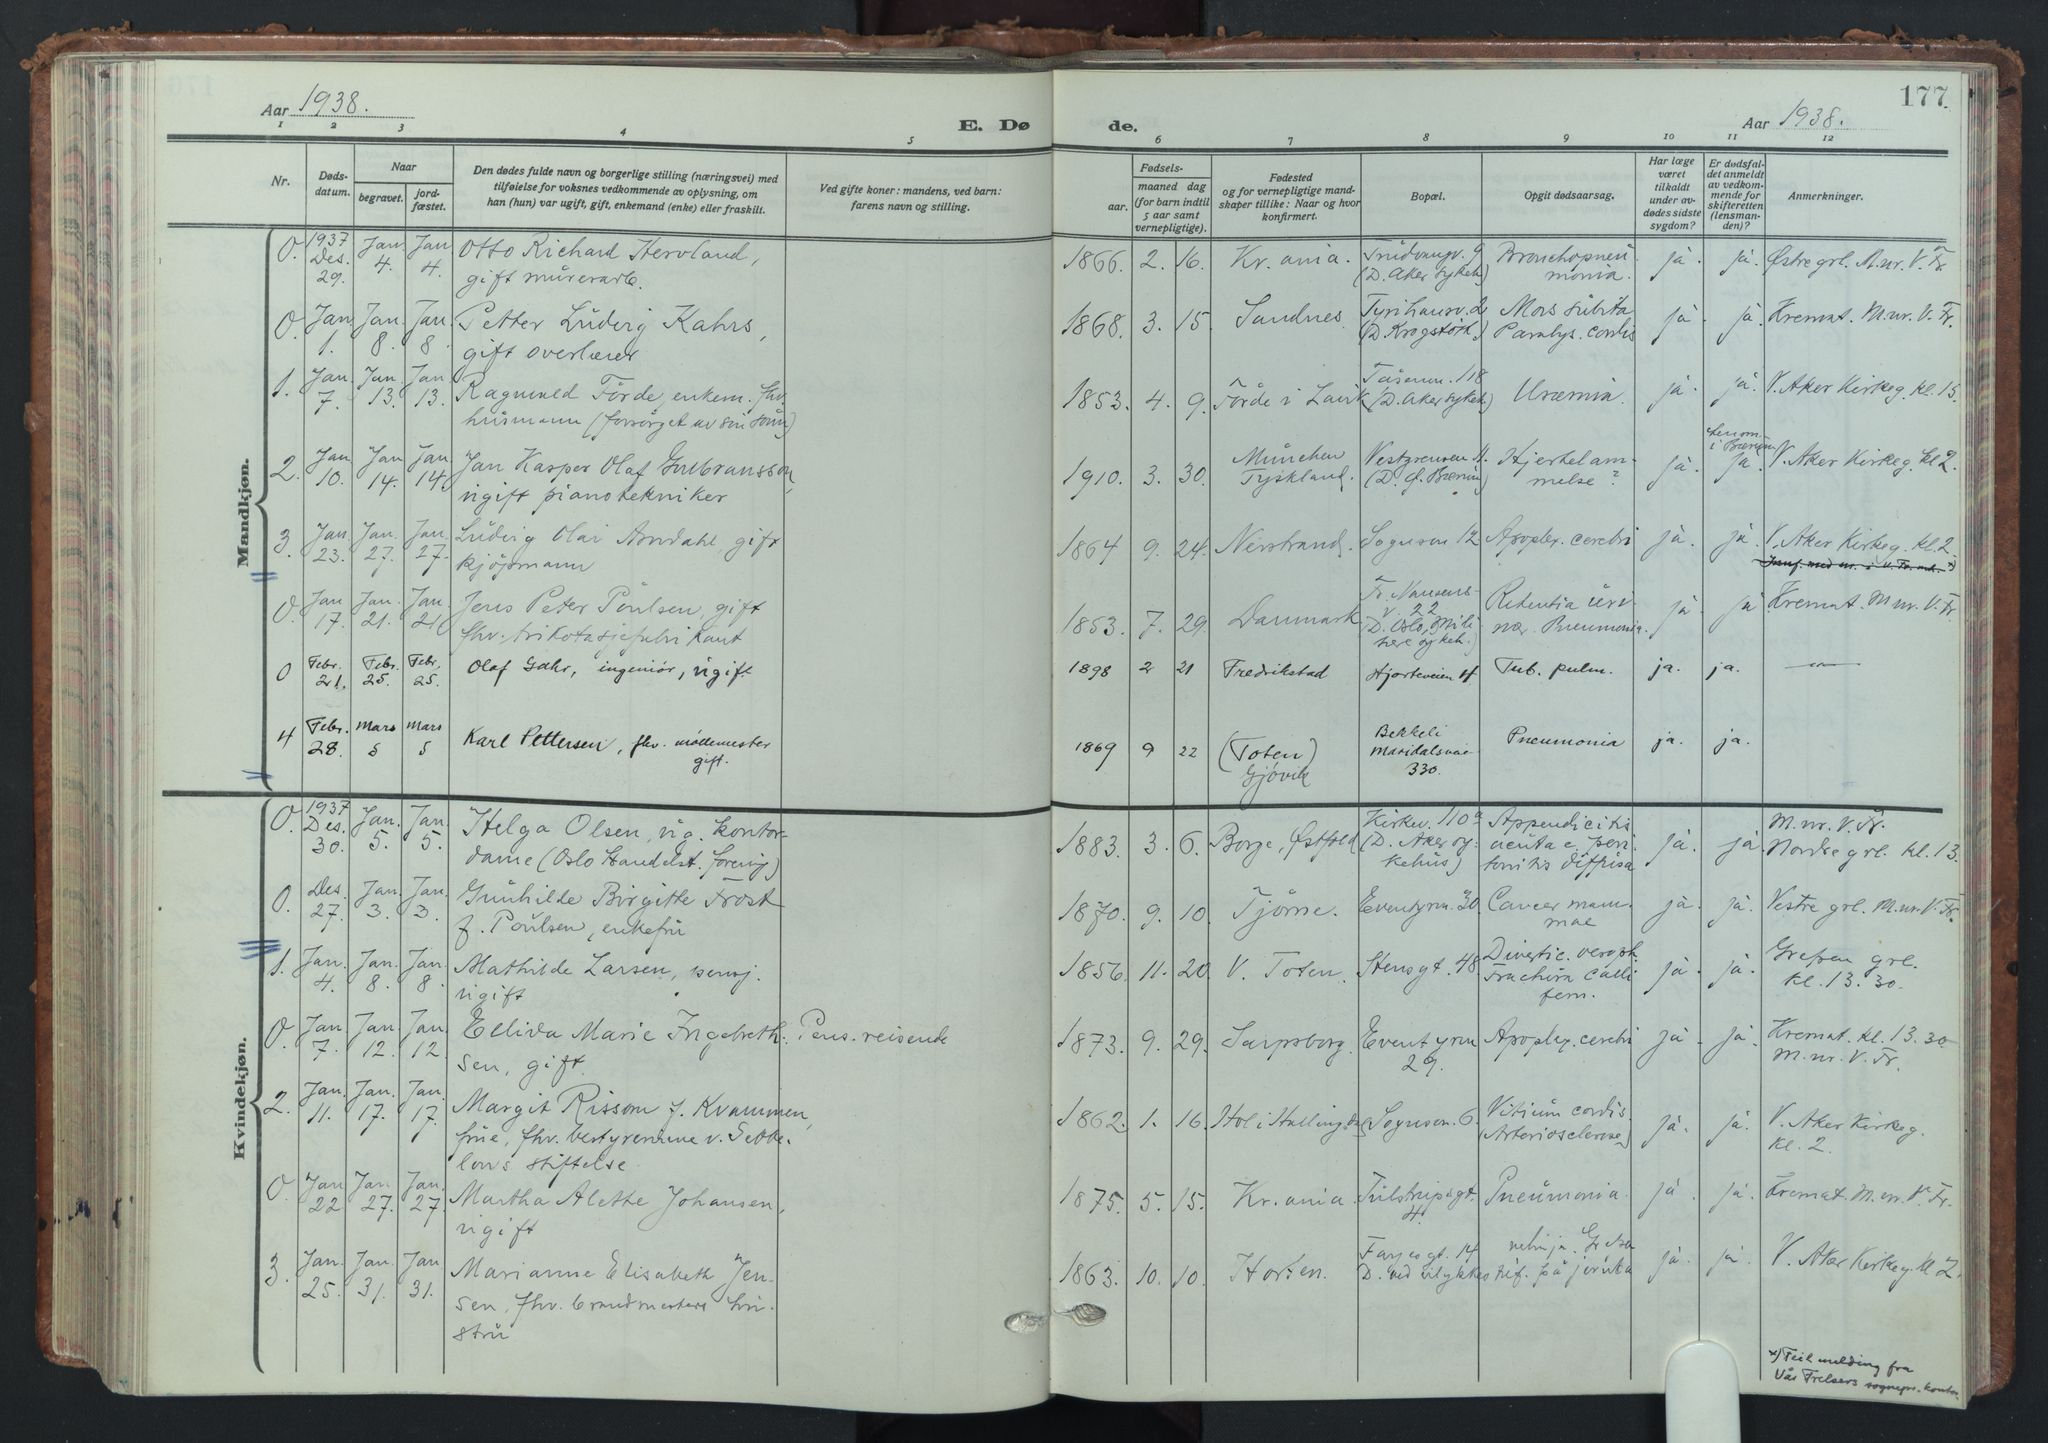 Aar 1938.
E. Dø
1 2 3 4 5
Nr.
Døds-
datum.
Naar
begravet.
jord-
fæstet.
Den dødes fulde navn og borgerlige stilling (næringsvei) med
tilføielse for voksnes vedkommende av oplysning, om
han (hun) var ugift, gift, enkemand (enke) eller fraskilt.
Ved gifte koner: mandens, ved barn:
farens navn og stilling.
Mandkjøn.
0. 1937 Des. 29. Jan 4. Jan 4. Otto Richard Hervland,
gift murerarb.
0. Jan 1. Jan. 8. Jan. 8. Petter Ludvig Kahrs,
gift overlærer
1. Jan 7. Jan. 13. Jan 13. Ragnvald Förde, enkem. fhv.
husmann (forsörget av sin sönn)
2. Jan 10. Jan 14. Jan. 14. Jan Kasper Olaf Gulbransson,
ugift pianotekniker
3. Jan 23. Jan. 27. Jan 27. Ludvig Olai Arndahl, gift
kjöpmann
0. Jan 17. Jan. 21. Jan 21. Jens Peter Poulsen, gift
fhv. trikotasjefabrikant
0 Febr. 21. Febr. 25. Febr. 25. Olaf Gahr, ingeniør, ugift
4 Febr. 28. Mars 5 Mars 5 Karl Pettersen, fhv. møllemester
gift.
Kvindekjøn.
0. 1937 Des. 30. Jan. 5. Jan. 5. Helga Olsen, ug. kontor-
dame (Oslo Handelst. forening)
0. Des. 27. Jan 3. Jan 3. Gunhilde Birgitte Frost
f. Poulsen, enkefru
1. Jan. 4. Jan. 8. Jan. 8. Mathilde Larsen, pensj.
ugift
0. Jan 7. Jan 12. Jan 12. Ellida Marie Ingebreth- Pens. reisende
sen, gift
2. Jan 11. Jan. 17. Jan. 17. Margit Rissom f. Kvammen,
frue, fhv. bestyrerinne v.
stiftelse
0. Jan 22 Jan. 27. Jan. 27. Martha Alette Johansen,
ugift
3. Jan. 25. Jan. 31. Jan. 31. Marianne Elisabeth Jen-
sen, fhv. brandmesters hu-
stru
177
de.
Aar 1938.
6 7 8 9 10 11 12
Fødsels-
aar.
maaned dag
(for barn indtil
5 aar samt
vernepligtige).
Fødested
og for vernepligtige mand-
skaper tillike: Naar og hvor
konfirmert.
Bopæl.
Opgit dødsaarsag.
Har læge
været
tilkaldt
under av-
dødes sidste
sygdom?
Er dødsfal-
det anmeldt
av vedkom-
mende for
skifteretten
(lensman-
den)?
Anmerkninger.
1866. 2. 16. Kr.ania. Trudvangv. 9 (D. Aker sykeh) Bronchopneu-
monia. ja ja. Østre grl. M.nr. V. Fr.
1868. 3. 15. Sandnes Tyrihansv. 2 (D. Krogstöth.) Mors subita
Paralys. cordis ja ja. Kremat. M.nr. V. Fr.
1853. 4. 9. Förde i Laurk Tåsenvn. 118 (D. Aker sykeh) Uræmia. ja. ja. V. Aker Kirkeg. kl. 15.
1910. 3. 30. München Tyskland. Vestgrensen 11. (D. i Bærum) Hjertelam-
melse? ja. Lensm. i Bærum ja. V. Aker Kirkeg. kl 2.
1864 9. 24. Nerstrand. Sognsvn 12 Apoplex. cerebri ja. ja. V. Aker Kirkeg. kl. 2.
1853. 7. 29. Danmark Fr. Nansens v. 22 (D. Oslo, Mili-
tære sykeh.) Retentia uri-
nær. Pneumonia. ja. ja Kremat. M.nr. V. Fr.
1898 2 21 Fredrikstad Hjorteveien 4 Tub. pulm. ja. ja.
1869 9 22 (Toten)
Gjøvik Bekkeli
Maridalsveie
330. Pneumonia ja. ja.
1883. 3. 6. Borge, Østfold Kirkev. 110a (D. Aker sy-
kehus) Appendicitis
acuta c. peri-
tonitis diffusa ja. ja. M.nr. V. Fr.
Nordre grl. kl. 13.
1870. 9. 10. Tjöme. Eventyrvn. 30. Cancer mam-
mae ja. ja. Vestre grl. M.nr. V. Fr.
1856. 11. 20. V. Toten. Stensgt. 48. Fractura colli
fem. ja. ja. Grefsen grl.
kl. 13.30.
1873. 9. 29. Sarpsborg. Eventyrvn
29. Apoplex. cerebri ja. ja. Kremat. kl. 13.30
M.nr. V. Fr.
1862. 1. 16. Hol i Hallingdal Sognsvn. 6. Vitium cordis
(Arteriosclerose) ja. ja. V. Aker Kirkeg.
kl. 2.
1875. 5. 15. Kr.ania Tulstrupsgt.
4. Pneumonia. ja. ja. Kremat. M.nr. V. Fr.
1863. 10. 10. Horten. Fayesgt. 14
D. ved ulykkes tilf. på ja. ja. V. Aker Kirkeg. kl 2.
x) Feil melding fra
Vår Frelsers sognepr. kontor